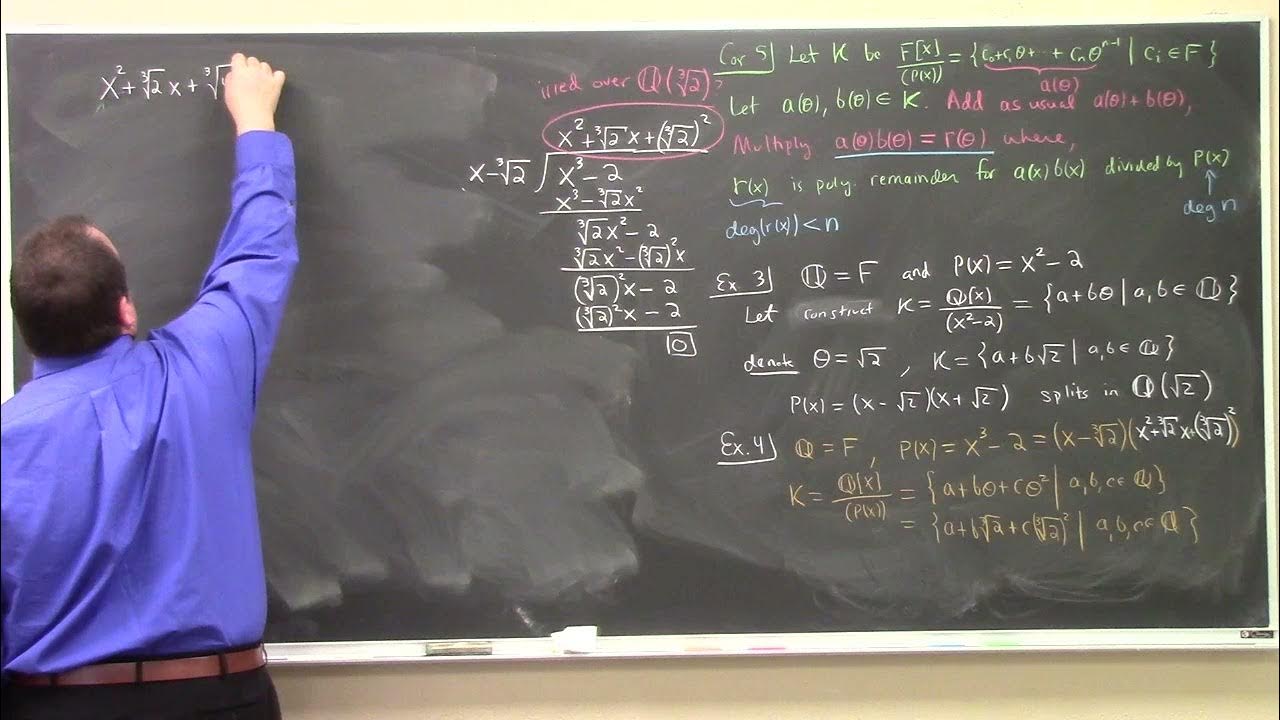 x² + ∛2 x + ∛
irred over ℚ(∛2)?
x² + ∛2 x + (∛2)²
x - ∛2 ) x³ - 2
x³ - ∛2 x²
∛2 x² - 2
∛2 x² - (∛2)² x
(∛2)² x - 2
(∛2)² x - 2
0
Cor 5] Let K be F[x]/(P(x)) = { c₀+c₁θ+⋯+cₙθⁿ⁻¹ | cᵢ ∈ F }
a(θ)
Let a(θ), b(θ) ∈ K. Add as usual a(θ)+b(θ),
Multiply a(θ)b(θ) = r(θ) where,
r(x) is poly. remainder for a(x)b(x) divided by P(x)
deg(r(x)) < n
deg n
Ex. 3] ℚ = F and P(x) = x² - 2
Let construct K = ℚ[x]/(x²-2) = { a+bθ | a,b ∈ ℚ }
denote θ = √2 , K = { a+b√2 | a,b ∈ ℚ }
P(x) = (x - √2)(x + √2) splits in ℚ(√2)
Ex. 4] ℚ = F , P(x) = x³ - 2 = (x - ∛2)(x² + ∛2 x + (∛2)²)
K = ℚ[x]/(P(x)) = { a+bθ+cθ² | a,b,c ∈ ℚ }
= { a+b√2+c(∛2)² | a,b,c ∈ ℚ }